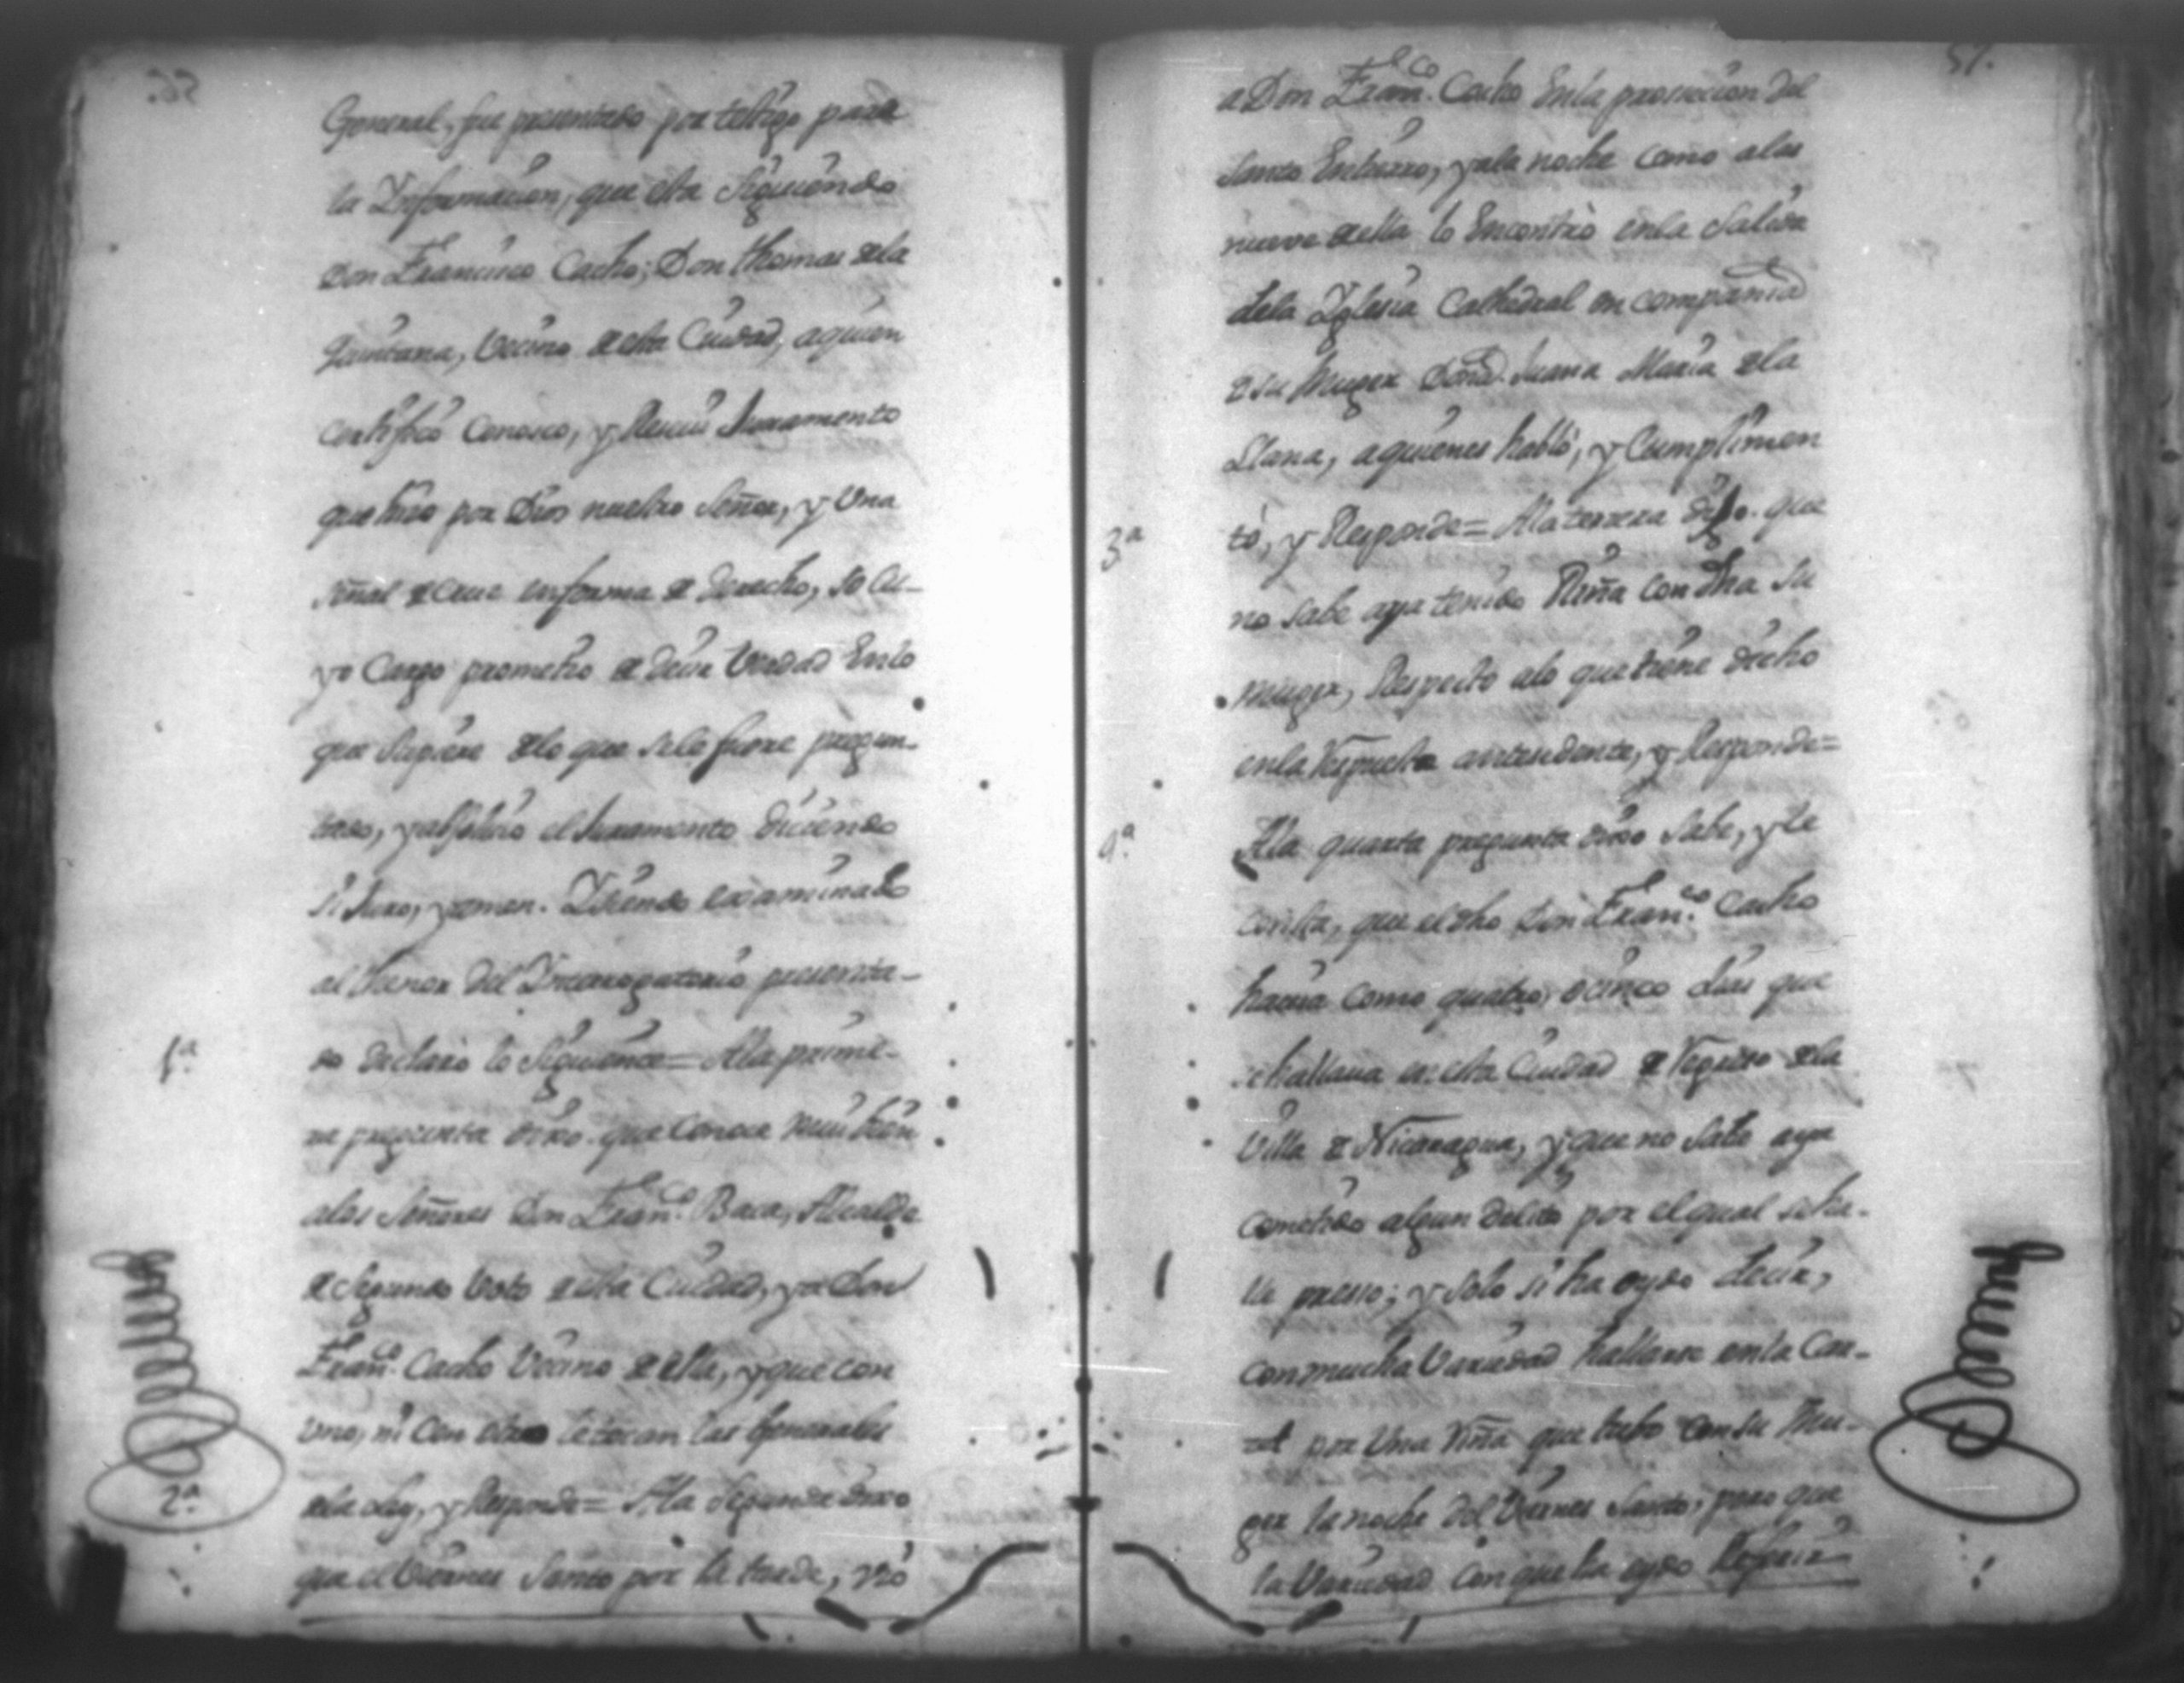 General, fue presentado por testigo para
la Informacion, que esta Siguiendo
Don Francisco Cacho; Don Thomas de la
Quintana, Vecino de esta Ciudad, aquien
Certifico Conosco, y Reciui Juramento
que hizo por Dios nuestro Señor, y Una
Señal de Cruz en forma de derecho, so cu-
yo Cargo prometio de decir Verdad En lo
que Supiere de lo que se le fuere pregun-
tado, y absolvio el Juramento diciendo
si Juro, y amen. I siendo examinado
al thenor del Interrogatorio presenta-
1ª do declaró lo Siguiente= Ala prime-
ra pregunta dixo. que Conoce mui bien
a los Señores Don Franco. Baca, Alcalde
de Segundo Voto de esta Ciudad, y a Don
Franco. Cacho Vecino de ella, y que con
uno, ni con otro le tocan las Generales
de la Ley, y Responde= A la Segunda dixo
2ª
que el Viernes Santo por la tarde, vió
57.
a Don Franco. Cacho En la prosecion del
Santo Entierro, y a la noche como a las
nueve de ella lo Encontró en la Salida
de la Iglesia Cathedral en compañia
de su Muger Doña. Juana Maria de la
Llana, a quienes habló, y Cumplimen
3ª tó, y Responde= A la terzera dijo. que
no sabe aya tenido Riña con dha su
muger, Respecto a lo que tiene dicho
en la Respuesta antesedente, y Responde=
4ª A la quarta pregunta dixo Sabe, y le
consta, que el dho Don Franco. Cacho
hacia como quatro, o cinco dias que
se hallaua en esta Ciudad de Regreso de la
Villa de Nicaragua, y que no Sabe aya
cometido algun delito por el qual se ha-
lla presso; y solo si ha oydo decir,
con mucha Variedad hallarse en la Car-
zel por Una Riña que tubo con su Mu-
ger la noche del Viernes Santo, pero que
la Variedad con que ha oydo Referir